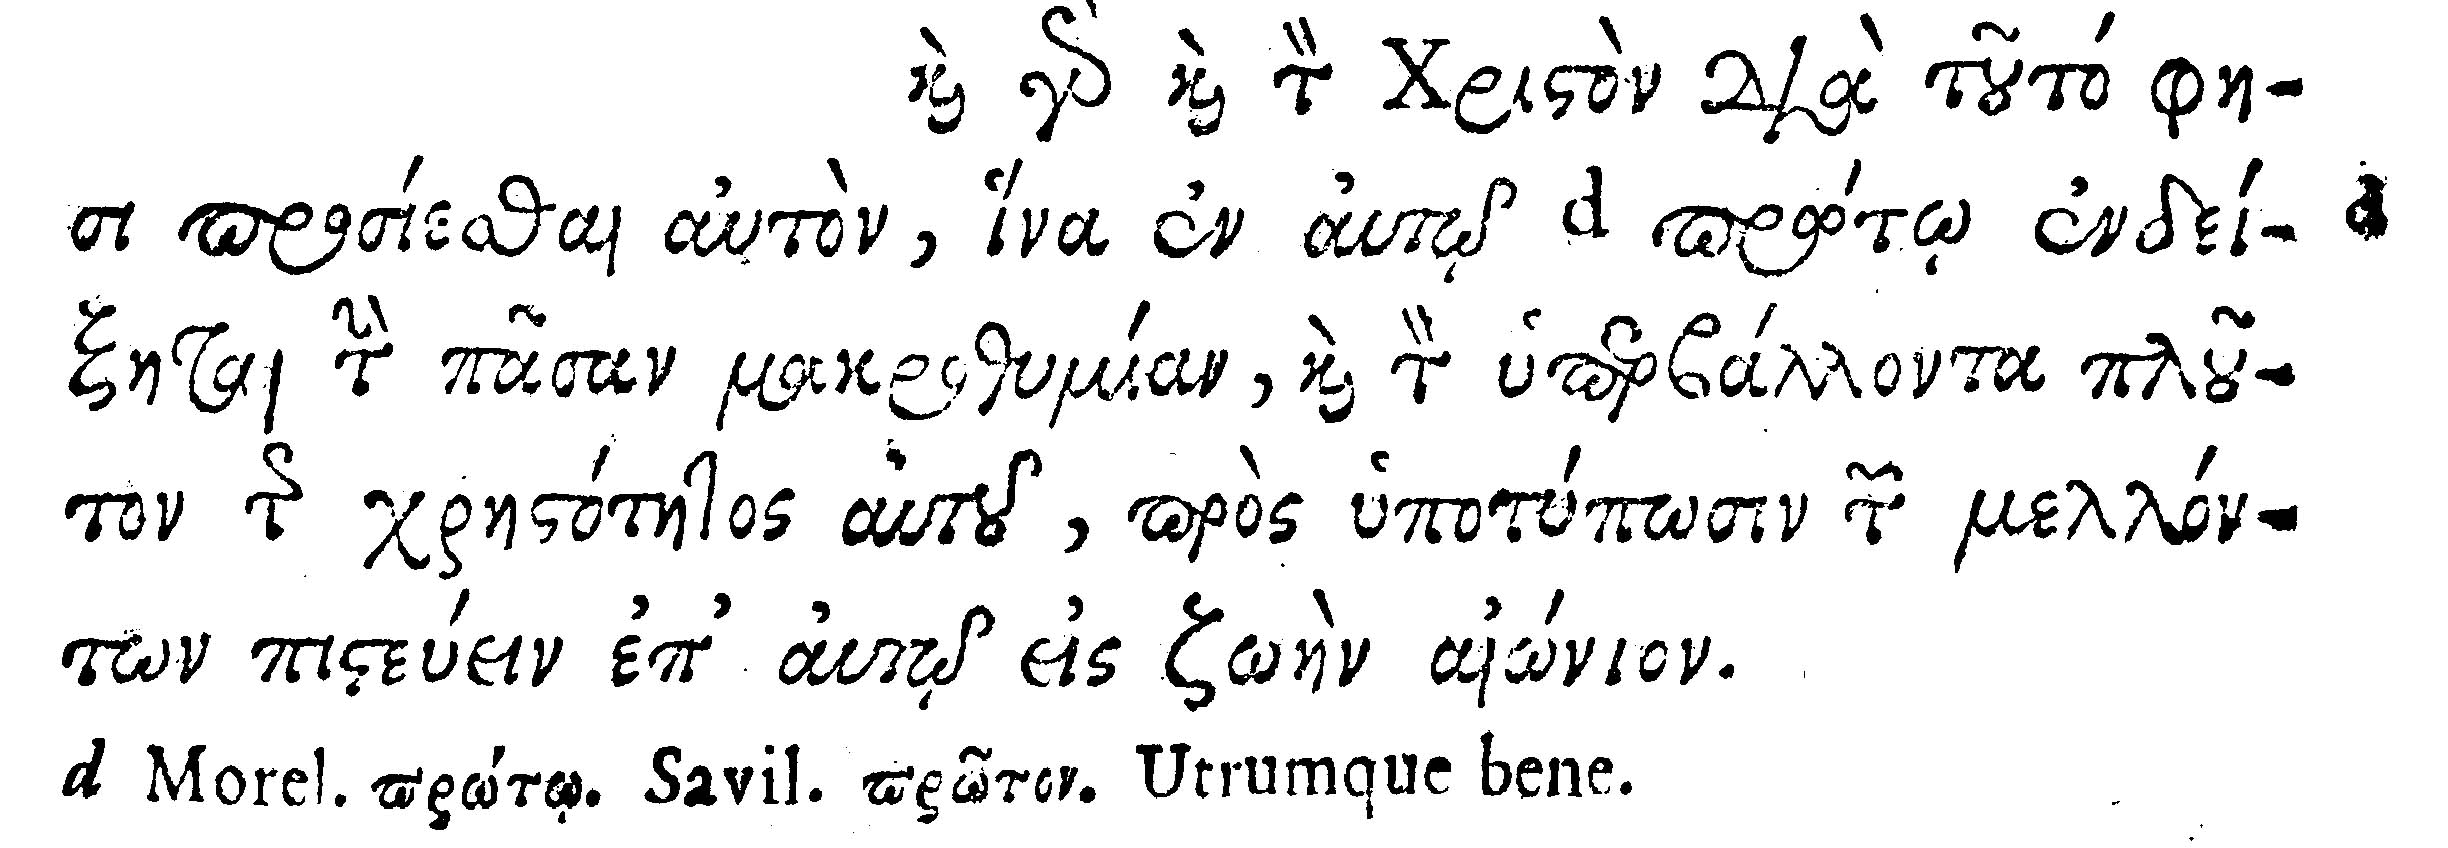 καὶ γὰρ καὶ τὸν Χριστὸν διὰ τοῦτό φη-
σι προσίεσθαι αὐτὸν, ἵνα ἐν αὐτῷ d πρώτῳ ἐνδεί- d
ξηται τὴν πᾶσαν μακροθυμίαν, καὶ τὸν ὑπερβάλλοντα πλοῦ-
τον τῆς χρηστότητος αὐτοῦ, πρὸς ὑποτύπωσιν τῶν μελλόν-
των πιστεύειν ἐπ' αὐτῷ εἰς ζωὴν αἰώνιον.
d Morel. πρώτῳ. Savil. πρῶτον. Utrumque bene.